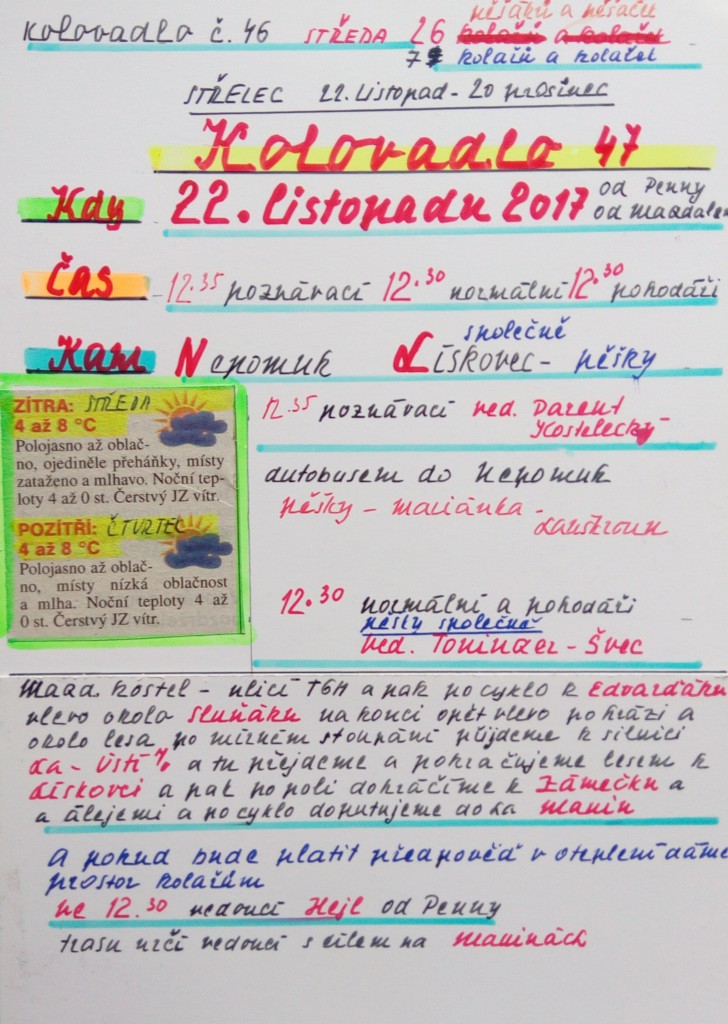 Kolovadlo č. 46 STŘEDA 26 pěšáků a pěšaček
7 kolařů a kolaček
STŘELEC 22. Listopad - 20 prosinec
Kolovadlo 47
Kdy 22. listopadu 2017 od Penny
od Magdalen
Čas 12.35 poznávací 12.30 normální 12.30 pohodáři
Kam Nepomuk společně Lískovec - pěšky
ZÍTRA: STŘEDA
4 až 8 °C
Polojasno až oblač-
no, ojediněle přeháňky, místy
zataženo a mlhavo. Noční tep-
loty 4 až 0 st. Čerstvý JZ vítr.
POZÍTŘÍ: ČTVRTEC
4 až 8 °C
Polojasno až oblač-
no, místy nízká oblačnost
a mlha. Noční teploty 4 až
0 st. Čerstvý JZ vítr.
12.35 poznávací ved. Parent
Kostelecký
autobusem do Nepomuk
pěšky - mariánka -
Lanškroun
12.30 normální a pohodáři
pěšky společně
ved. Toninger - Švec
Magd. kostel - ulicí TGM a pak po cyklo k Edvarďáku
vlevo okolo Sluňáku na konci opět vlevo po hrázi a
okolo lesa po mírném stoupání půjdeme k silnici
La - Ústí a tu přejdeme a pokračujeme lesem k
Lískovci a pak po poli dokráčíme k Zámečku a
a alejemi a po cyklo doputujeme do La manin
A pokud bude platit předpověď v oteplení dáme
prostor kolařům
ve 12.30 vedoucí Hejl od Penny
trasu určí vedoucí s cílem na maninách